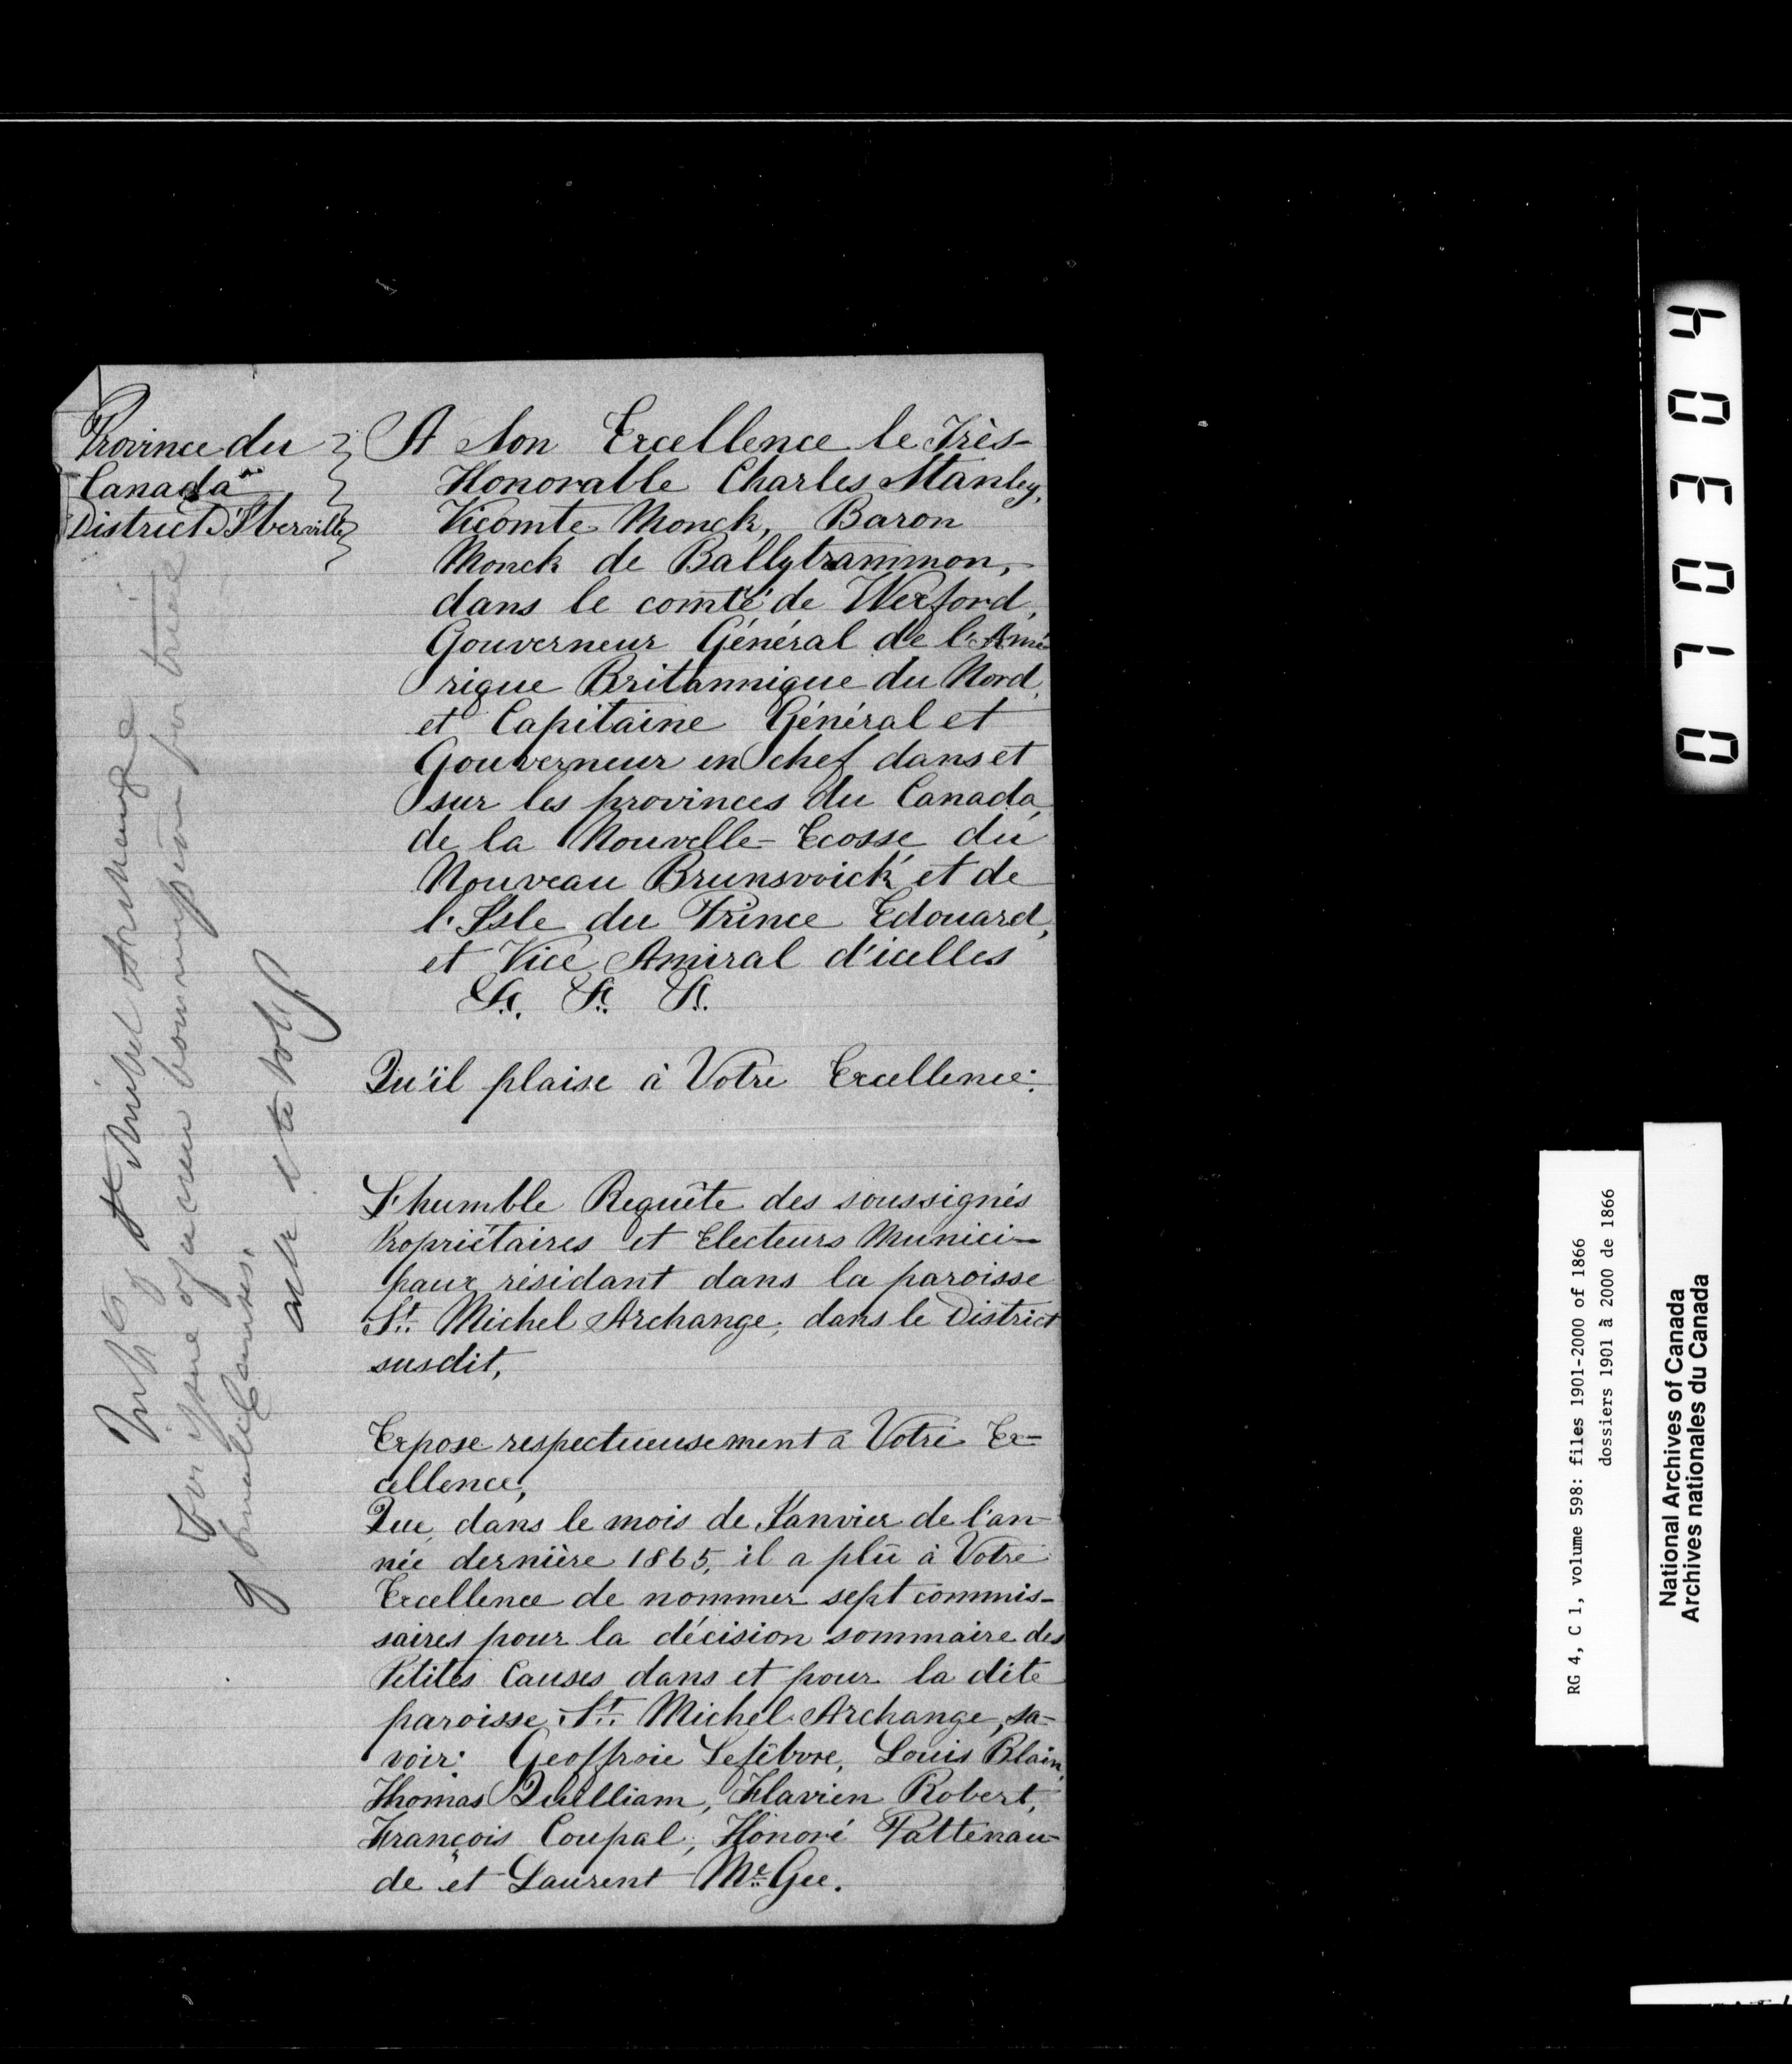 Province du
Canada
District D'Iberville
A Son Excellence le Très-
Honorable Charles Stanley,
Vicomte Monck, Baron
Monck de Ballytrammon,
dans le comté de Wexford,
Gouverneur Général de l'Amé
rique Britannique du Nord,
et Capitaine Général et
Gouverneur en chef dans et
sur les provinces du Canada,
de la Nouvelle-Ecosse du
Nouveau Brunswick et de
l'Isle du Prince Edouard,
et Vice Amiral d'icelles
&c. &c. &c.
Qu'il plaise à Votre Excellence:
L'humble Requête des soussignés
Propriétaires et Electeurs Munici-
paux résidant dans la paroisse
St. Michel Archange, dans le District
susdit,
Expose respectueusement a Votre Ex-
cellence,
Que, dans le mois de Janvier de l'an-
née dernière 1865, il a plû à Votre
Excellence de nommer sept commis-
saires pour la décision sommaire des
Petites Causes dans et pour la dite
paroisse St. Michel Archange, sa-
voir: Geoffroie Lefêbvre, Louis Blain,
Thomas Quilliam, Flavien Robert,
François Coupal, Honoré Pattenau-
de et Laurent Mc.Gee.
St Michel Archange
For issue of a new Commission for trial
of small Causes.
01034
RG 4, C 1, volume 598: files 1901-2000 of 1866
dossiers 1901 à 2000 de 1866
National Archives of Canada
Archives nationales du Canada